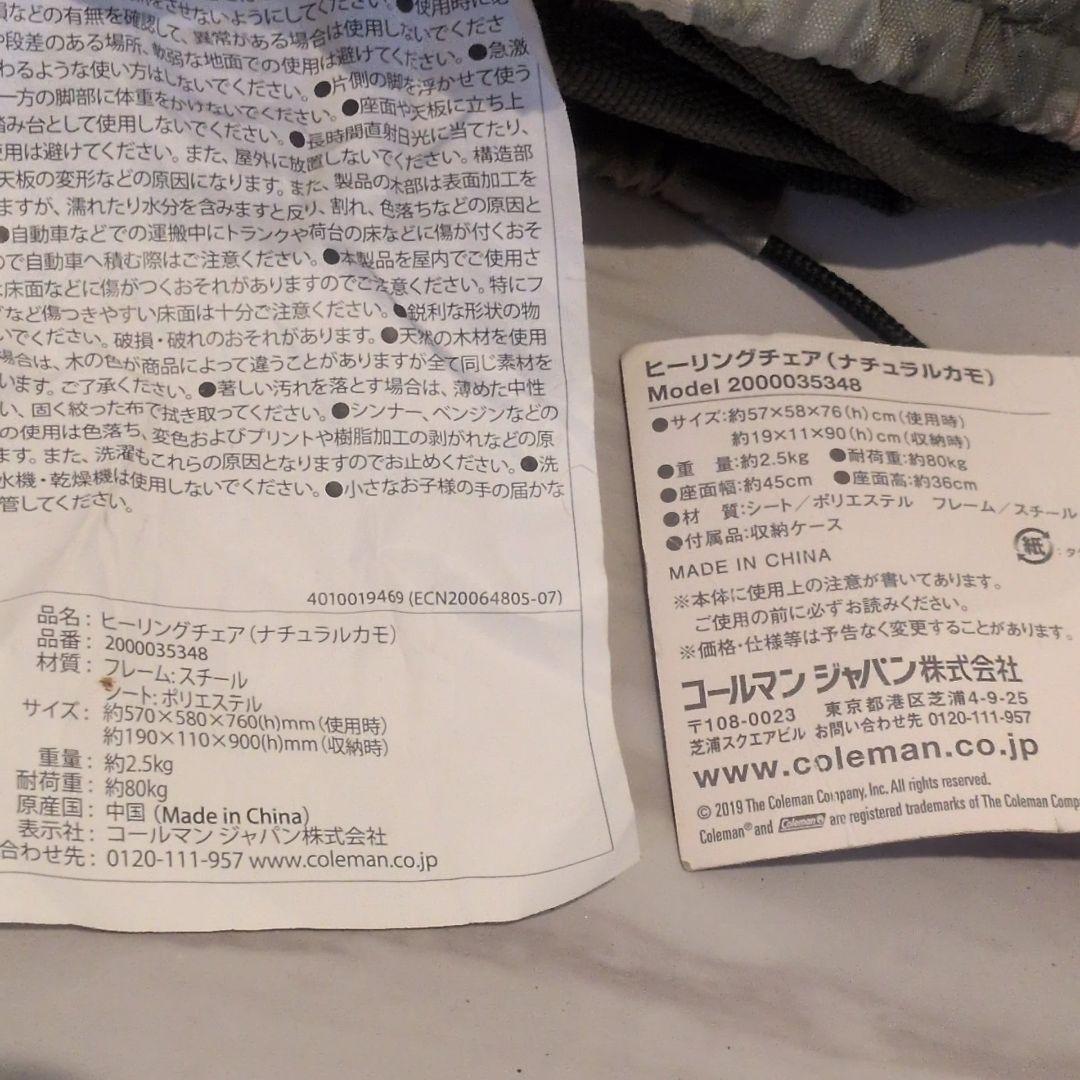 損などの有無を確認して、異常がある場合は使用しないでくださ
や段差のある場所、軟弱な地面での使用は避けてください。●急激
わるような使い方はしないでください。●片側の脚を浮かせて使う
一方の脚部に体重をかけないでください。●座面や天板に立ち上
踏み台として使用しないでください。●長時間直射日光に当てたり、
使用は避けてください。また、屋外に放置しないでください。構造部
天板の変形などの原因になります。また、製品の木部は表面加工を
ますが、濡れたり水分を含みますと反り、割れ、色落ちなどの原因と
●自動車などでの運搬中にトランクや荷台の床などに傷が付くおそ
ので自動車へ積む際はご注意ください。●本製品を屋内でご使用さ
床面などに傷がつくおそれがありますのでご注意ください。特にフ
など傷つきやすい床面は十分ご注意ください。●鋭利な形状の物
いでください。破損・破れのおそれがあります。●天然の木材を使用
場合は、木の色が商品によって違うことがありますが全て同じ素材を
います。ご了承ください。●著しい汚れを落とす場合は、薄めた中性
い、固く絞った布で拭き取ってください。●シンナー、ベンジンなどの
の使用は色落ち、変色およびプリントや樹脂加工の剥がれなどの原
ます。また、洗濯もこれらの原因となりますのでお止めください。●洗
水機・乾燥機は使用しないでください。●小さなお子様の手の届かな
管してください。
4010019469 (ECN20064805-07)
品名: ヒーリングチェア(ナチュラルカモ)
品番: 2000035348
材質: フレーム:スチール
シート:ポリエステル
サイズ: 約570×580×760(h)mm(使用時)
約190×110×900(h)mm(収納時)
重量: 約2.5kg
耐荷重: 約80kg
原産国: 中国 (Made in China)
表示社: コールマン ジャパン株式会社
合わせ先: 0120-111-957 www.coleman.co.jp
ヒーリングチェア(ナチュラルカモ)
Model 2000035348
●サイズ:約57×58×76(h)cm(使用時)
約19×11×90(h)cm(収納時)
●重 量:約2.5kg ●耐荷重:約80kg
●座面幅:約45cm ●座面高:約36cm
●材 質:シート/ポリエステル フレーム/スチール
●付属品:収納ケース
紙 :タ
MADE IN CHINA
※本体に使用上の注意が書いてあります。
ご使用の前に必ずお読みください。
※価格・仕様等は予告なく変更することがあります。
コールマン ジャパン株式会社
〒108-0023 東京都港区芝浦4-9-25
芝浦スクエアビル お問い合わせ先 0120-111-957
www.coleman.co.jp
© 2019 The Coleman Company, Inc. All rights reserved.
Coleman® and Coleman are registered trademarks of The Coleman Comp